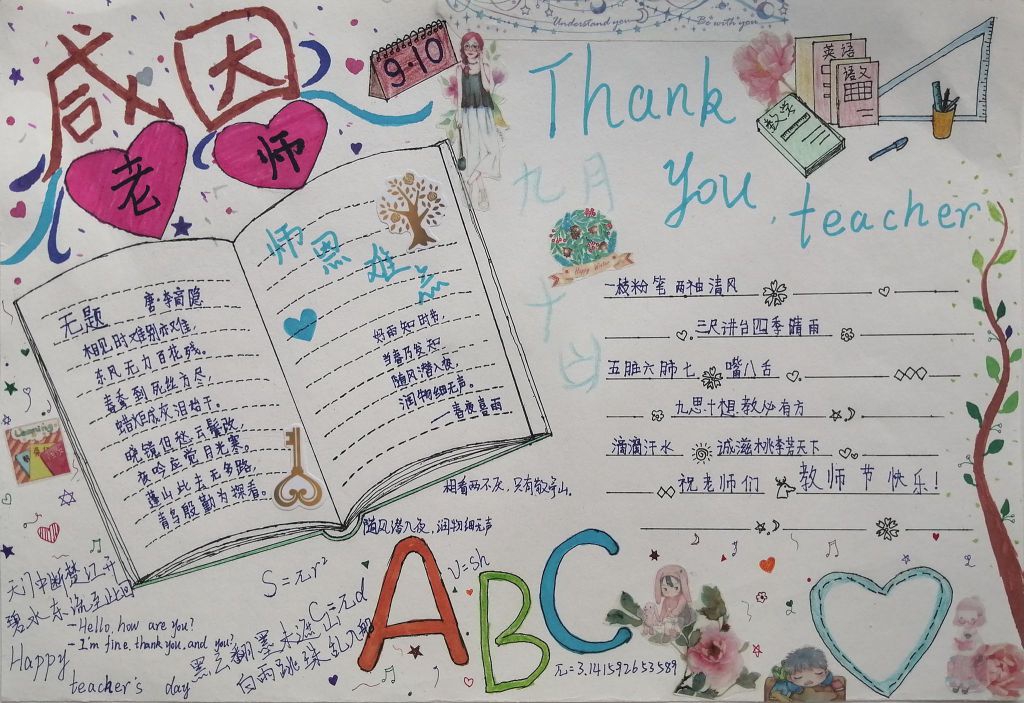 感恩
老师
9·10
Understand you
Be with you
Thank
you, teacher
英语
语文
数学
九月
十日
Happy Winter
师恩难忘
无题 唐·李商隐
相见时难别亦难,
东风无力百花残。
春蚕到死丝方尽,
蜡炬成灰泪始干。
晓镜但愁云鬓改,
夜吟应觉月光寒。
蓬山此去无多路,
青鸟殷勤为探看。
好雨知时节,
当春乃发生
随风潜入夜
润物细无声。
——春夜喜雨
一枝粉笔 两袖清风
三尺讲台四季晴雨
五脏六肺七 嘴八舌
九思十想教必有方
滴滴汗水 诚滋桃李芳天下
祝老师们 教师节快乐!
相看两不厌,只有敬亭山。
随风潜入夜,润物细无声
天门中断楚江开
碧水东流至此回
- Hello, how are you?
- I'm fine, thank you, and you?
Happy
teacher's day
S=πr²
C=πd
V=sh
黑云翻墨未遮山
白雨跳珠乱入船
ABC
π=3.141592653589